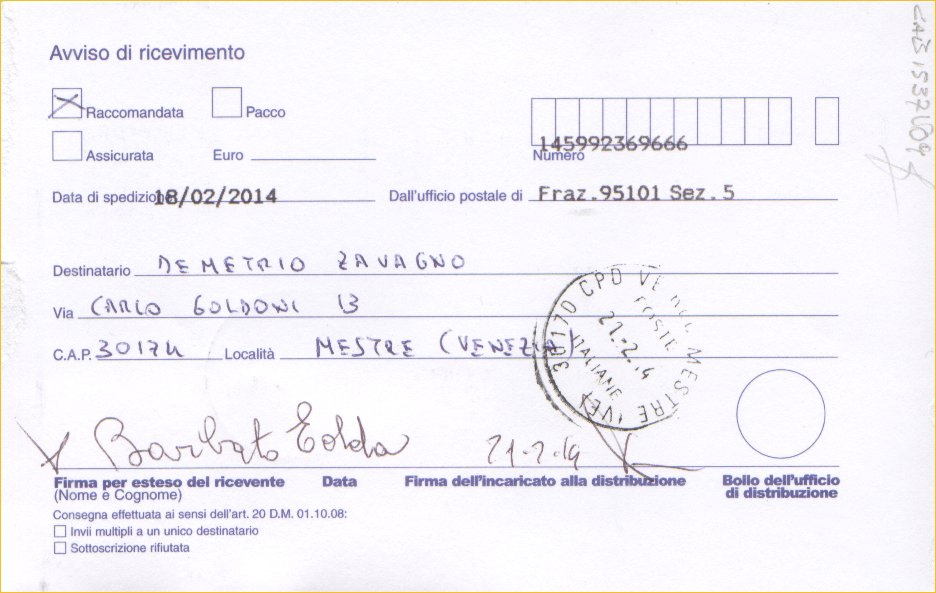 Avviso di ricevimento
Raccomandata Pacco
Assicurata Euro
145992369666
Numero
Data di spedizione 18/02/2014 Dall'ufficio postale di Fraz.95101 Sez.5
Destinatario DEMETRIO ZAVAGNO
Via CARLO GOLDONI 13
C.A.P. 30174 Località MESTRE (VENEZIA)
30170 CPD VE MESTRE (VE)
POSTE
21.2.14
ITALIANE
Barbato Eolda 21-2-14
Firma per esteso del ricevente Data Firma dell'incaricato alla distribuzione Bollo dell'ufficio
(Nome e Cognome) di distribuzione
Consegna effettuata ai sensi dell'art. 20 D.M. 01.10.08:
Invii multipli a un unico destinatario
Sottoscrizione rifiutata